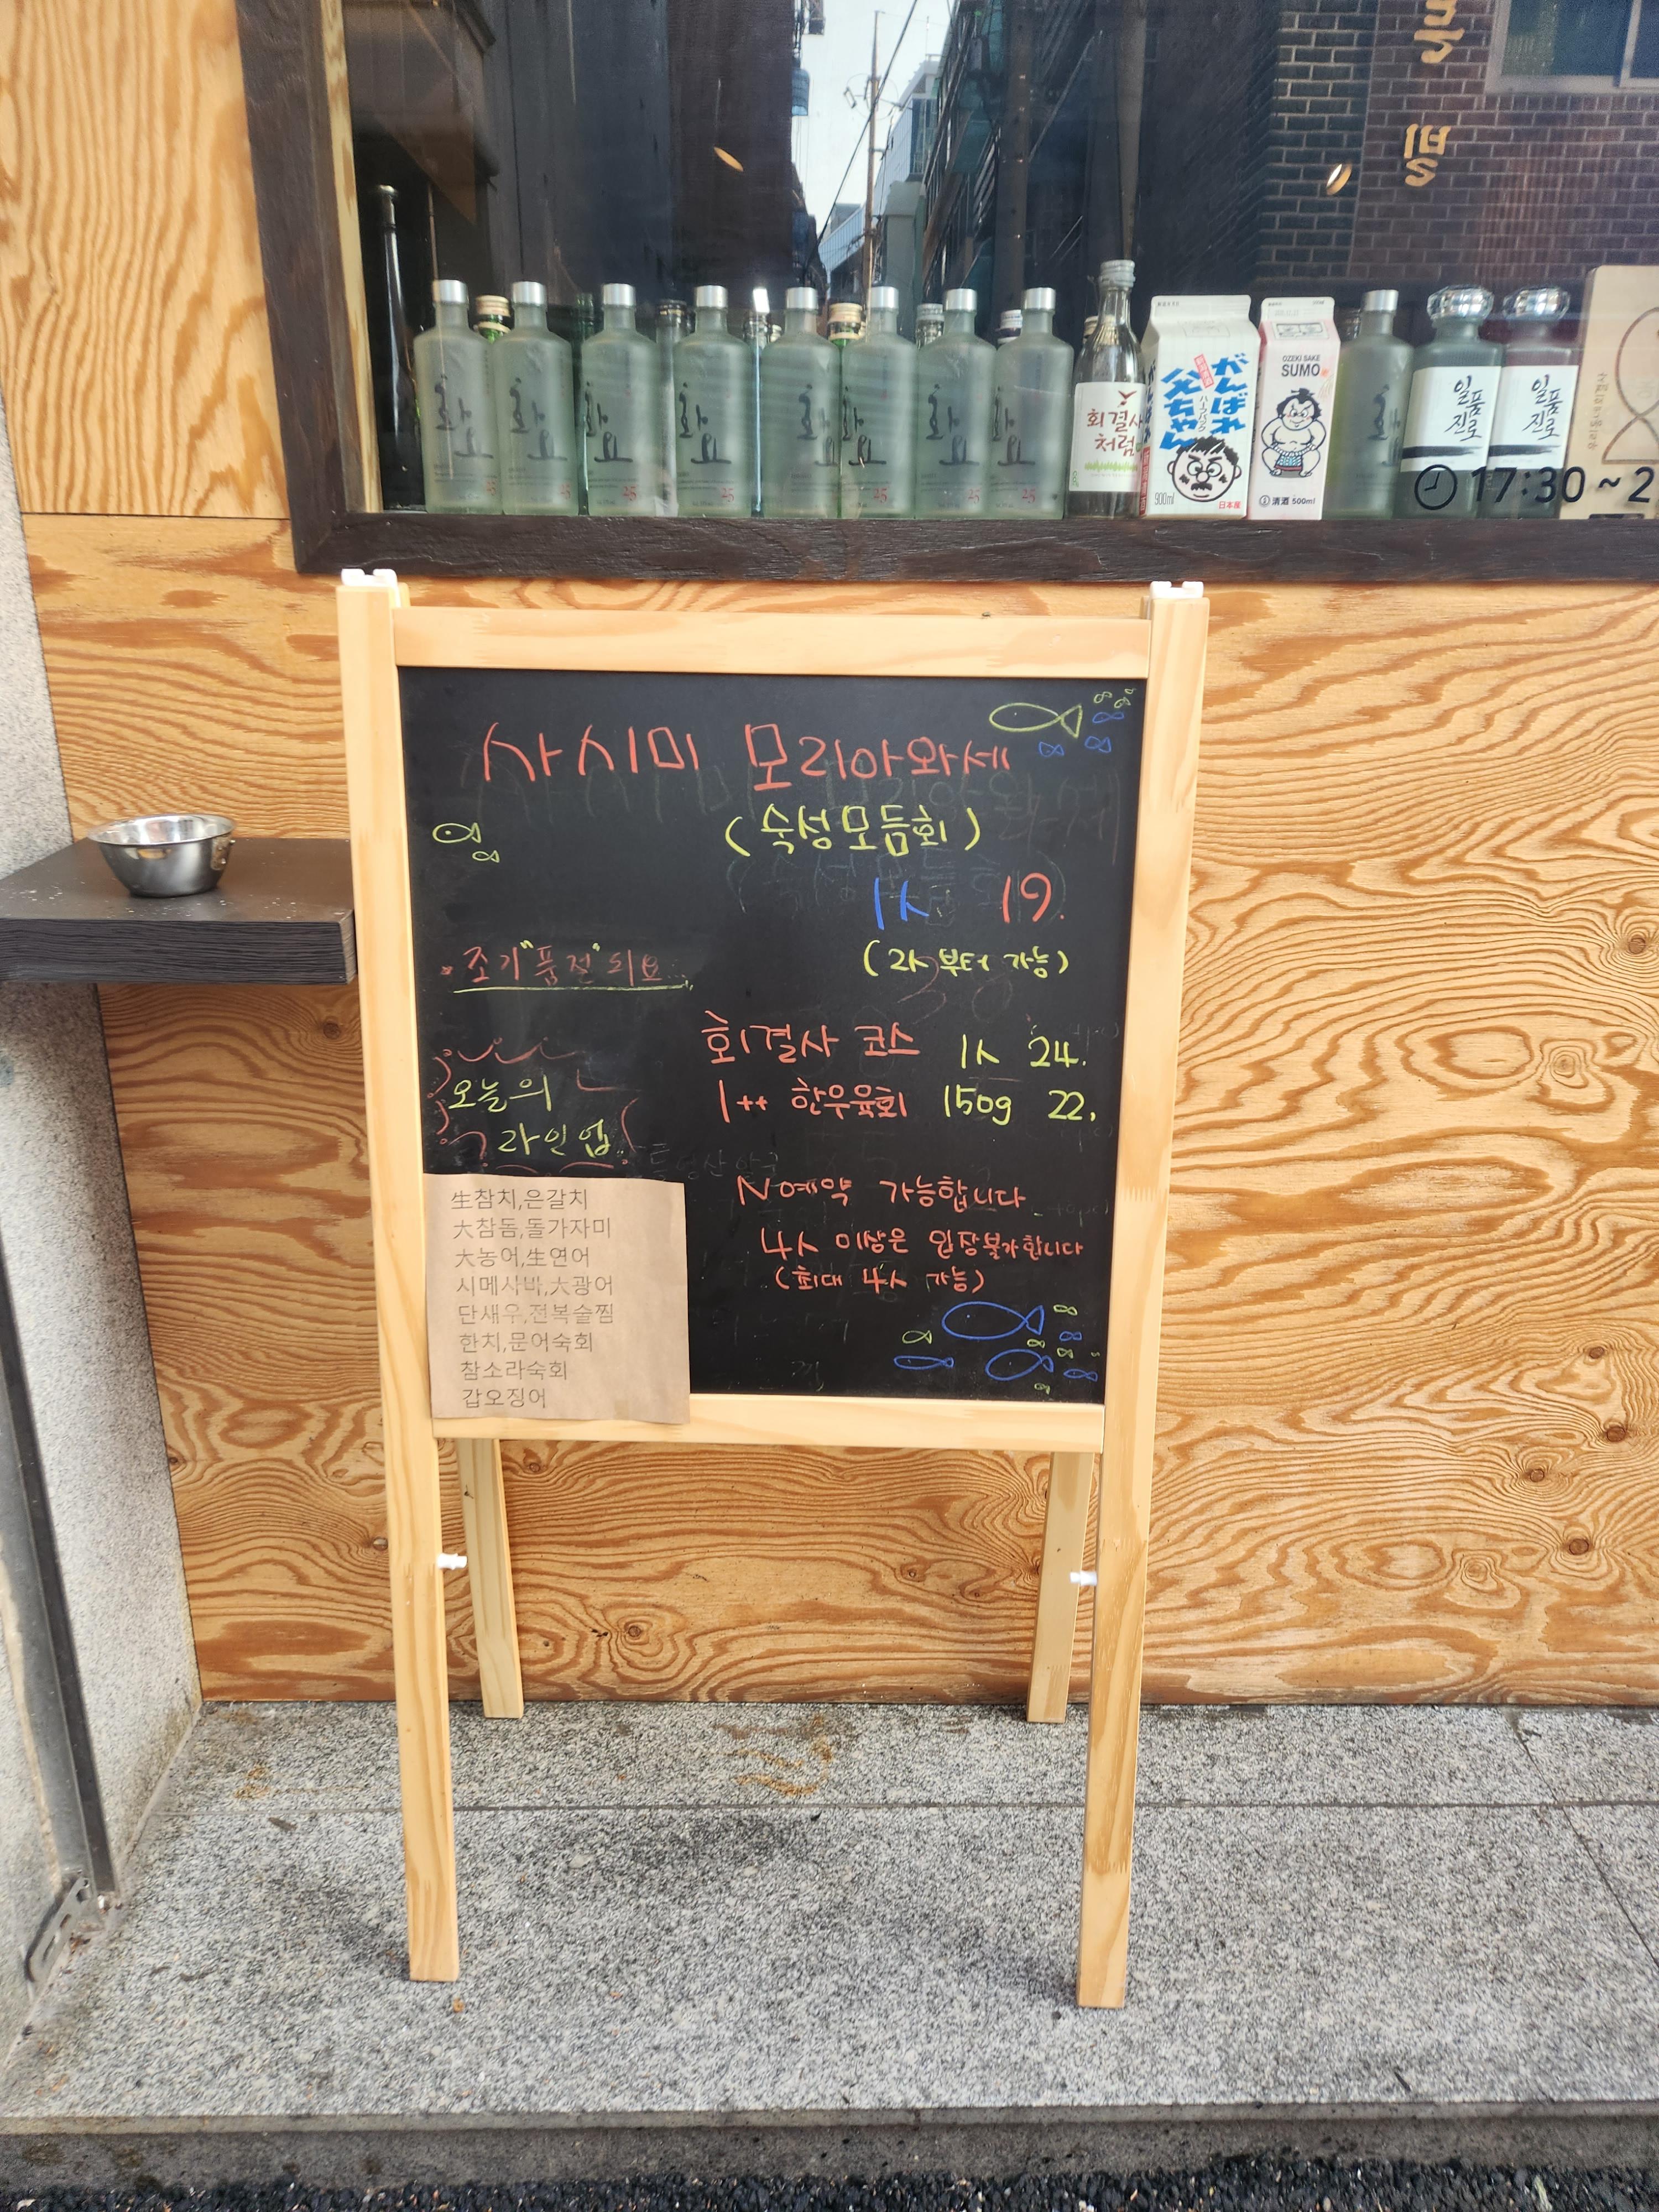 화요
25
화요
25
화요
25
화요
25
화요
화요
25
화요
25
화요
25
회결사
처럼
がんばれ
父ちゃん
ハーフパック
900ml
日本産
OZEKI SAKE
SUMO
清酒 500ml
화요
일품
진로
일품
진로
우리동네회결사
17:30 ~ 2
사시미 모리아와세
(숙성모듬회)
1人 19.
(2人 부터 가능)
. 조기"품절"되요
회결사 코스 1人 24.
1++ 한우육회 150g 22.
오늘의
라인업
N예약 가능합니다
4人 이상은 입장불가합니다
(최대 4人 가능)
生참치,은갈치
大참돔,돌가자미
大농어,生연어
시메사바,大광어
단새우,전복술찜
한치,문어숙회
참소라숙회
갑오징어